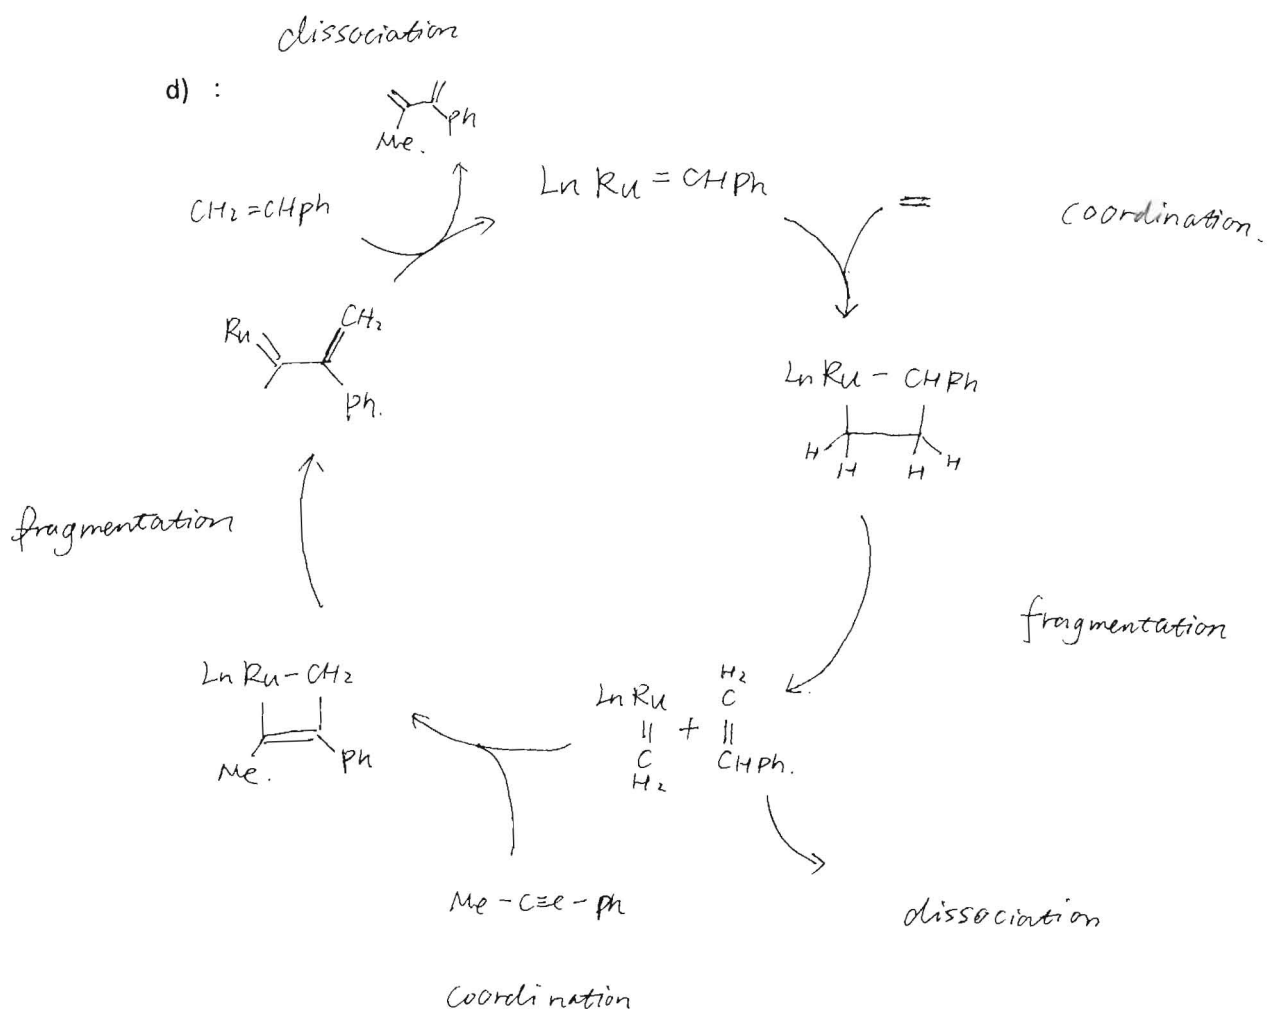 dissociation
d) :
Me.
Ph
CH₂=CHPh
Ln Ru = CHPh
=
coordination.
Ru
CH₂
Ph.
Ln Ru - CHPh
H H H H
fragmentation
fragmentation
Ln Ru - CH₂
Me.
Ph
Ln Ru
||
C
H₂
+
H₂
C
||
CHPh.
Me - C≡C - Ph
dissociation
coordination